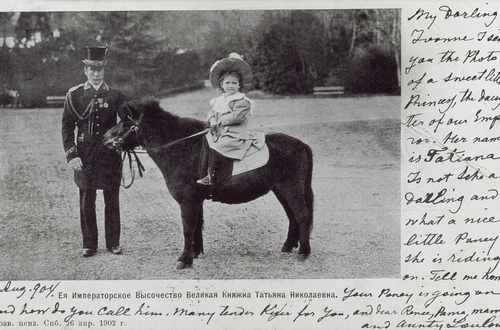 My Darling
Ivonne I sen
you the Photo
of a sweet litt
Princess, the dau
ter of our Emp
ror. Her name
is Tatiana
Is not she a
darling and
what a nice
little Poney
she is riding
on. Tell me how
Aug. 904. Ея Императорское Высочество Великая Княжна Татьяна Николаевна. Your Poney is going on
and how do you call him. Many tender Kisses for you, and dear Renee, Pama, man
рав. цена. Спб. 26 апр. 1902 г. and Aunty